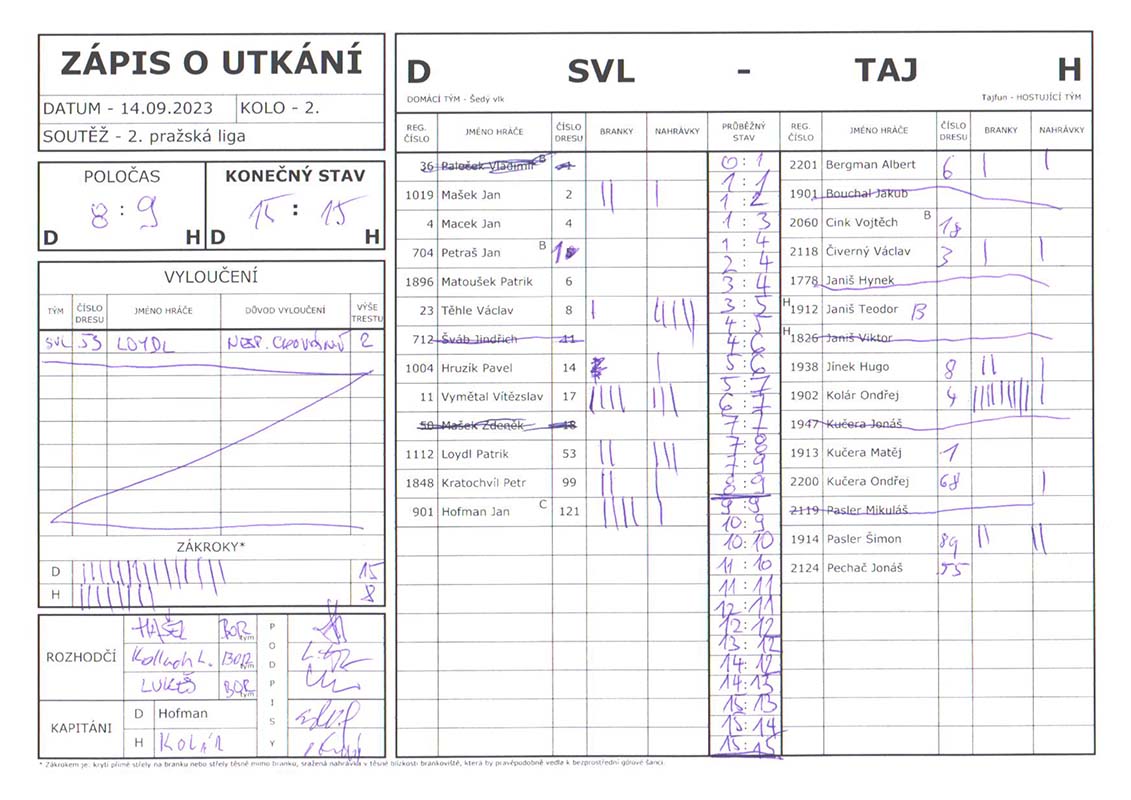 ZÁPIS O UTKÁNÍ
DATUM - 14.09.2023 KOLO - 2.
SOUTĚŽ - 2. pražská liga
POLOČAS KONEČNÝ STAV
8 : 9 15 : 15
D H D H
VYLOUČENÍ
TÝM ČÍSLO DRESU JMÉNO HRÁČE DŮVOD VYLOUČENÍ VÝŠE TRESTU
SVL 53 LOYDL NESP. CHOVÁNÍ 2
ZÁKROKY*
D 15
H 8
ROZHODČÍ
HAŠEL BOR tým
BOR tým
LUKEŠ BOR tým
PODPISY
KAPITÁNI
D Hofman
H KOLÁR
D SVL - TAJ H
DOMÁCÍ TÝM - Šedý vlk Tajfun - HOSTUJÍCÍ TÝM
REG. ČÍSLO JMÉNO HRÁČE ČÍSLO DRESU BRANKY NAHRÁVKY PRŮBĚŽNÝ STAV REG. ČÍSLO JMÉNO HRÁČE ČÍSLO DRESU BRANKY NAHRÁVKY
36 Paloček Vladimír B 1
1019 Mašek Jan 2
4 Macek Jan 4
704 Petraš Jan B
1896 Matoušek Patrik 6
23 Těhle Václav 8
712 Šváb Jindřich 11
1004 Hruzík Pavel 14
11 Vymětal Vítězslav 17
50 Mašek Zdeněk 18
1112 Loydl Patrik 53
1848 Kratochvíl Petr 99
901 Hofman Jan C 121
0:1
1:1
1:2
1:3
1:4
2:4
3:4
3:5
4:5
4:6
5:6
5:7
6:7
7:7
7:8
7:9
8:9
9:9
10:9
10:10
11:10
11:11
12:11
12:12
13:12
14:12
14:13
15:13
15:14
15:15
2201 Bergman Albert 6
1901 Bouchal Jakub
2060 Cink Vojtěch B 18
2118 Čiverný Václav 3
1778 Janiš Hynek
H 1912 Janiš Teodor B
H 1826 Janiš Viktor
1938 Jínek Hugo 8
1902 Kolár Ondřej 4
1947 Kučera Jonáš
1913 Kučera Matěj 1
2200 Kučera Ondřej 68
2119 Pasler Mikuláš
1914 Pasler Šimon 89
2124 Pechač Jonáš 55
* Zákrokem je: krytí přímé střely na branku nebo střely těsně mimo branku, sražená nahrávka v těsné blízkosti brankoviště, která by pravěpodobně vedla k bezprostřední gólové šanci.